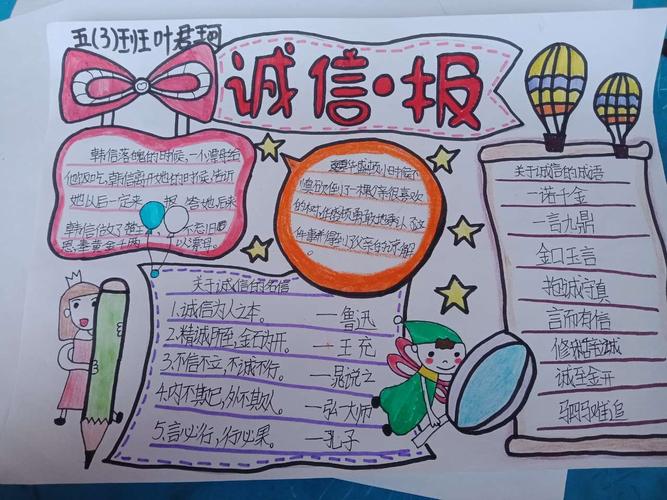 五(3)班叶君珂
诚信·报
韩信落魄的时候,一个漂母给
他饭吃,韩信离开她的时候,告诉
她以后一定来 报答她,后来
韩信做了楚王, 不忘旧
恩,拿黄金千两 以谢母。
小时候不
的树,在父亲
件事,得到了父亲的谅解
关于诚信的名信
1.诚信为人之本。 —鲁迅
2.精诚所至,金石为开。 —王充
3.不信不立,不诚不行。 —晁说之
4.内不欺己,外不欺人。 —弘一大师
5.言必行,行必果。 —孔子
关于诚信的成语
一诺千金
一言九鼎
金口玉言
抱诚守真
言而有信
修辞立诚
诚至金开
驷马难追